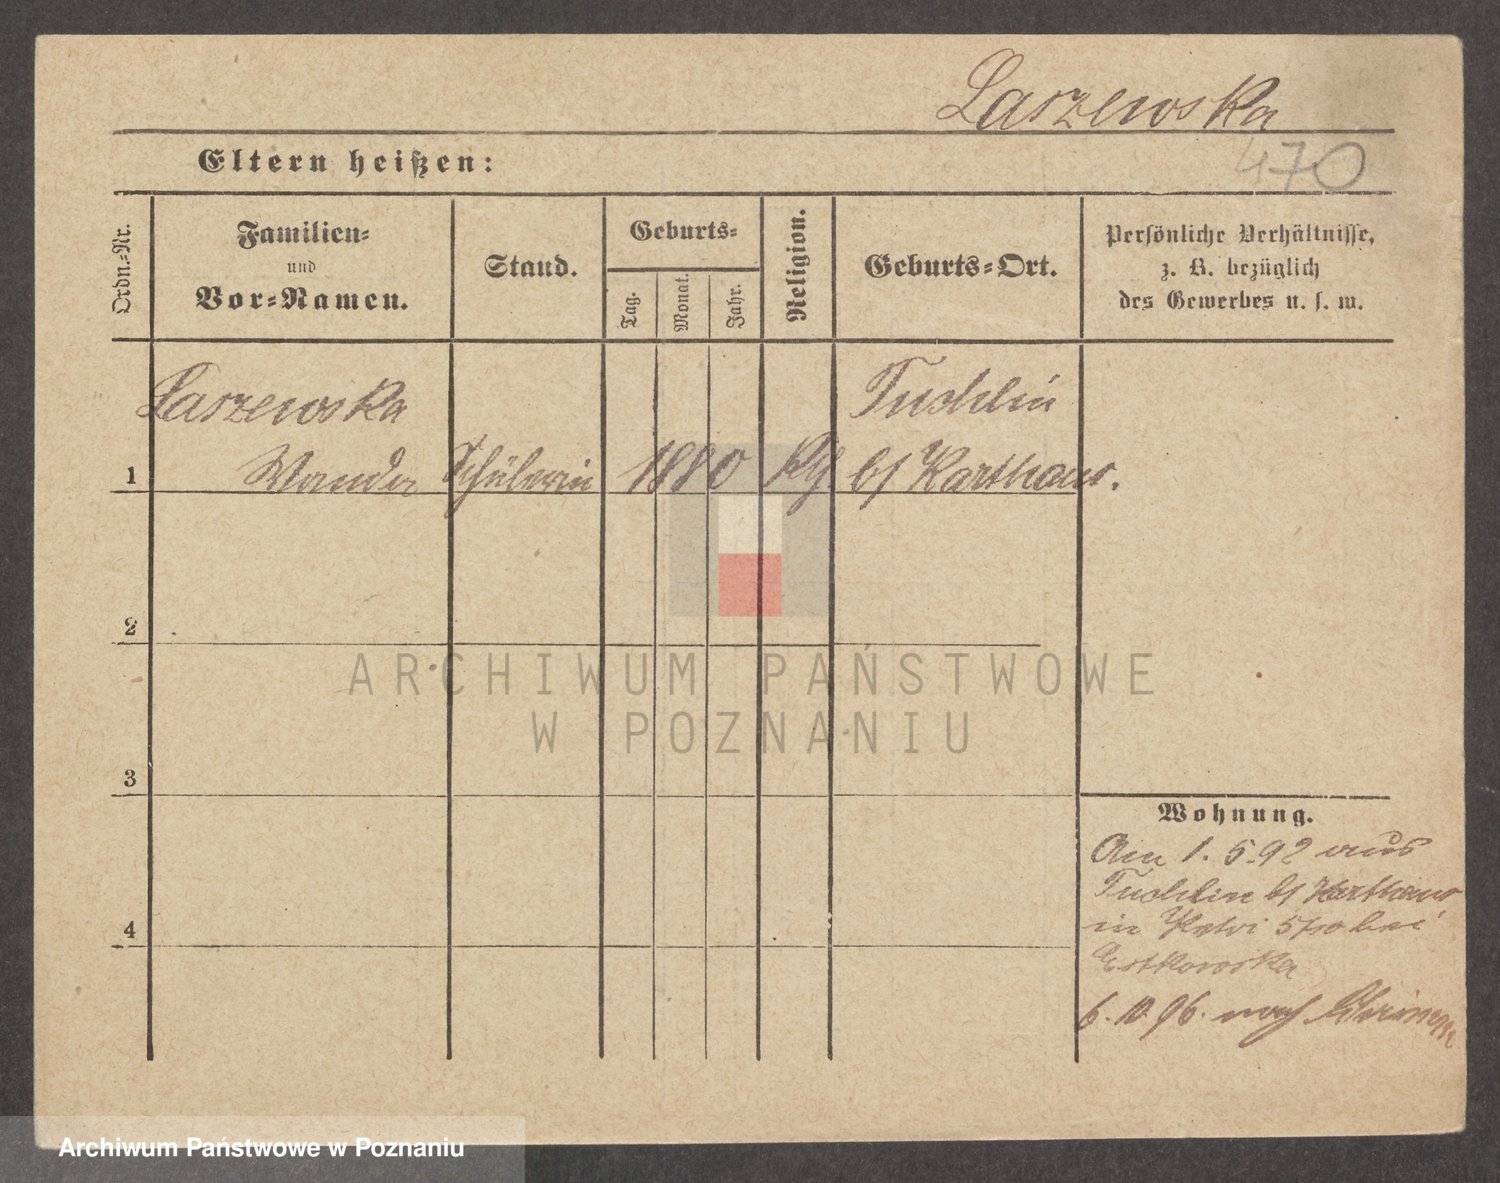 Laszewska
Eltern heißen:
470
Ordn.-Nr.
Familien-
und
Vor-Namen.
Stand.
Geburts-
Tag.
Monat.
Jahr.
Religion.
Geburts-Ort.
Persönliche Verhältnisse,
z. B. bezüglich
des Gewerbes u. s. w.
Laszewska
Tuchlin
1 Wanda Schülerin 1880 kth b/ Karthaus.
2
ARCHIWUM PAŃSTWOWE
W POZNANIU
3
Wohnung.
Am 1. 5. 92 aus
Tuchlin b/ Karthaus
in bei
Estkowska
4
6. 10. 96. nach
Archiwum Państwowe w Poznaniu